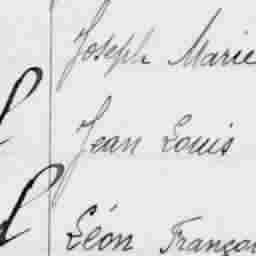 Joseph Marie
Jean Louis
Léon